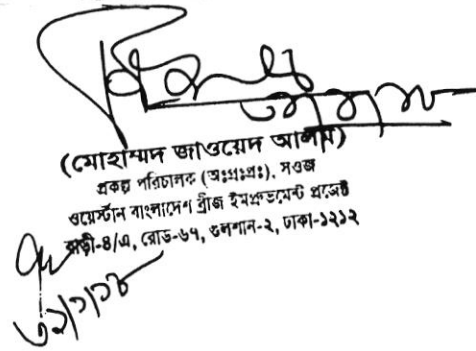 (মোহাম্মদ জাওয়েদ আলম)
প্রকল্প পরিচালক (অঃপ্রঃপ্রঃ), সওজ
ওয়েস্টার্ন বাংলাদেশ ব্রীজ ইমপ্রুভমেন্ট প্রজেক্ট
বাড়ী-৪/এ, রোড-৬৭, গুলশান-২, ঢাকা-১২১২